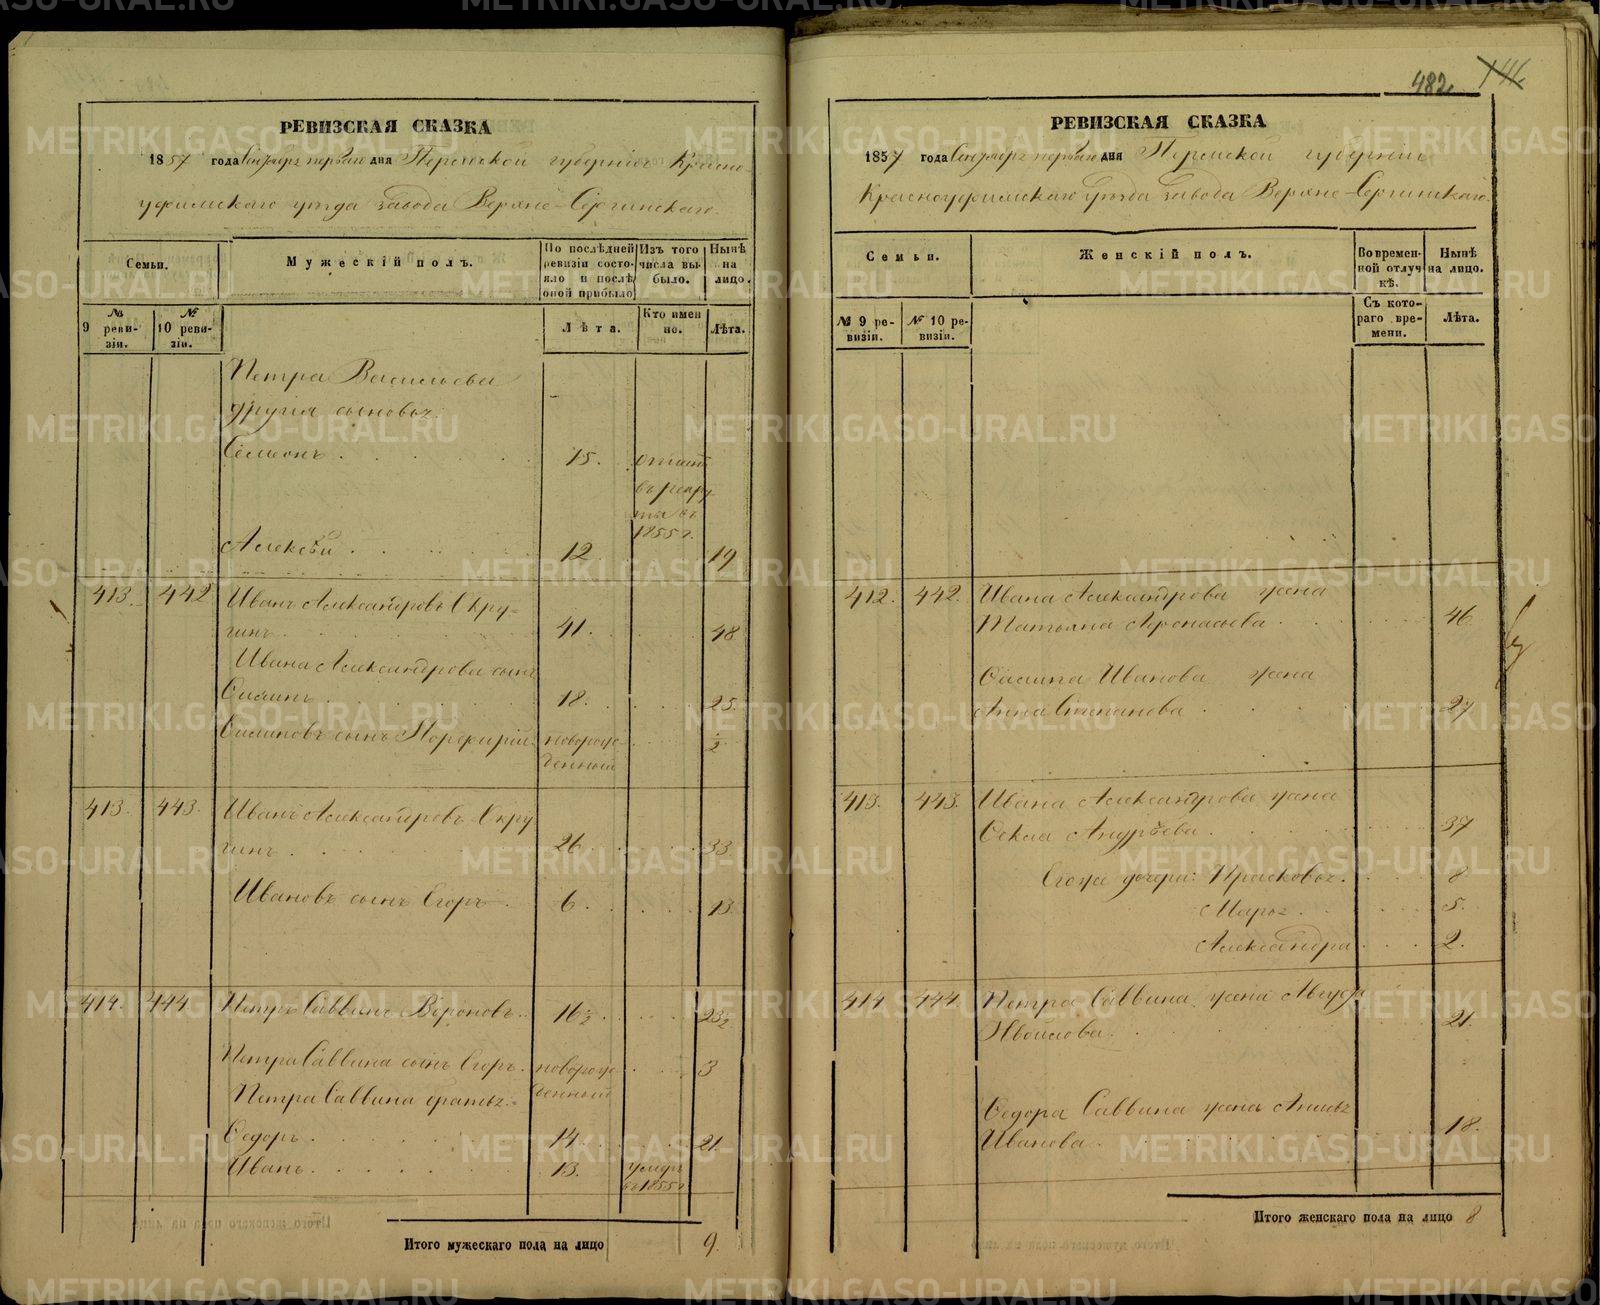 РЕВИЗСКАЯ СКАЗКА
1857 года Сентября перваго дня Пермской губерніи Красно-
уфимскаго уѣзда завода Верхне-Сергинскаго.
Семьи.
Мужескій полъ.
По послѣдней ревизіи состояло и послѣ оной прибыло
Изъ того числа выбыло.
Нынѣ на лицо.
№ 9 ревизіи.
№ 10 ревизіи.
Лѣта.
Кто именно.
Лѣта.
Петра Васильева
другія сыновья:
Семенъ 15. отданъ
въ рекру
ты въ
1855 г.
Алексѣй 12 19
413. 442 Иванъ Александровъ Скру-
гинъ 41. 48
Ивана Александрова сынъ
18. 25
сынъ Порфирій новорож-
денный ½
413. 443. Иванъ Александровъ Скру
гинъ 26 33
Ивановъ сынъ Егоръ 6. 13
414. 444 Петръ Саввинъ Вороновъ 16½ 23½
Петра Саввина сынъ Егоръ новорож
денный 3
Петра Саввина братья:
Ѳедоръ 14 21
Иванъ 13. умеръ
въ 1855 г
Итого мужескаго пола на лицо 9.
482 146
РЕВИЗСКАЯ СКАЗКА
1857 года Сентября перваго дня Пермской губерніи
Красноуфимскаго уѣзда завода Верхне-Сергинскаго.
Семьи.
Женскій полъ.
Во временной отлучкѣ.
Нынѣ на лицо.
№ 9 ревизіи.
№ 10 ревизіи.
Съ котораго времени.
Лѣта.
412. 442. Ивана Александрова жена
Татьяна Афонасьева 46
Иванова жена
Анна Степанова 27
413. 443. Ивана Александрова жена
Ѳекла Андрѣева 37
Егожа дочери: Прасковья 8
Марья 5.
Александра 2.
414 444 Петра Саввина жена
21.
Ѳедора Саввина жена
Иванова 18.
Итого женскаго пола на лицо 8
METRIKI.GASO-URAL.RU